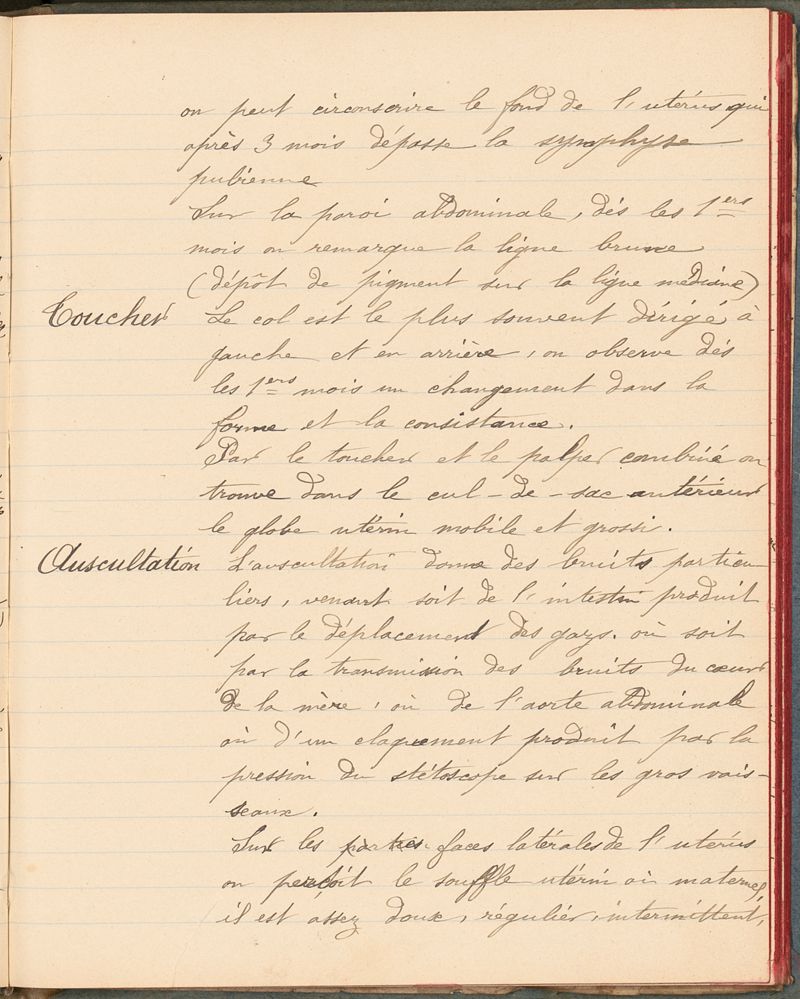 on peut circonscrire le fond de l'utérus qui
après 3 mois dépasse la symphyse
pubienne
Sur la paroi abdominale, dés les 1ers
mois on remarque la ligne brune
(dépôt de pigment sur la ligne médiane)
Toucher Le col est le plus souvent dirigé à
gauche et en arrière, on observe dés
les 1ers mois un changement dans la
forme et la consistance.
Par le toucher et le palper combiné on
trouve dans le cul-de-sac antérieur
le globe utérin mobile et grossi.
Auscultation L'auscultation donne des bruits particu-
liers, venant soit de l'intestin produit
par le déplacement des gazs. où soit
par la transmission des bruits du cœur
de la mère, où de l'aorte abdominale
où d'un claquement produit par la
pression du stétoscope sur les gros vais-
seaux.
Sur les parties faces latérales de l'utérus
on perçoit le souffle utérin où maternel,
il est assez doux, régulier, intermittent,